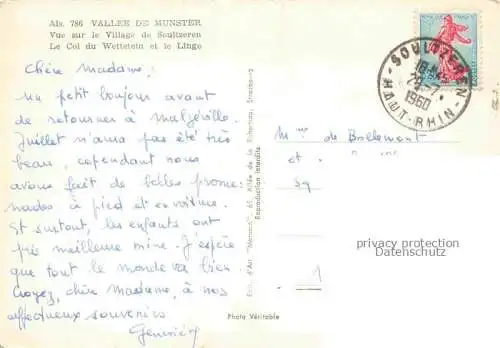 Als. 786 VALLEE DE MUNSTER
Vue sur le Village de Soultzeren
Le Col du Wettstein et le Linge
Chère Madame,
un petit bonjour avant
de retourner à
Juillet n'aura pas été très
beau, cependant nous
avons fait de belles prome
nades à pied et en voiture.
Et surtout, les enfants ont
pris meilleure mine. J'espère
que tout le monde va bien
Croyez, chère Madame, à nos
affectueux souvenirs
Geneviève
Reproduction interdite
Photo Véritable
SOULTZEREN
29-7
1960
HAUT-RHIN
Mme de
et
Sq
1
privacy protection
Datenschutz